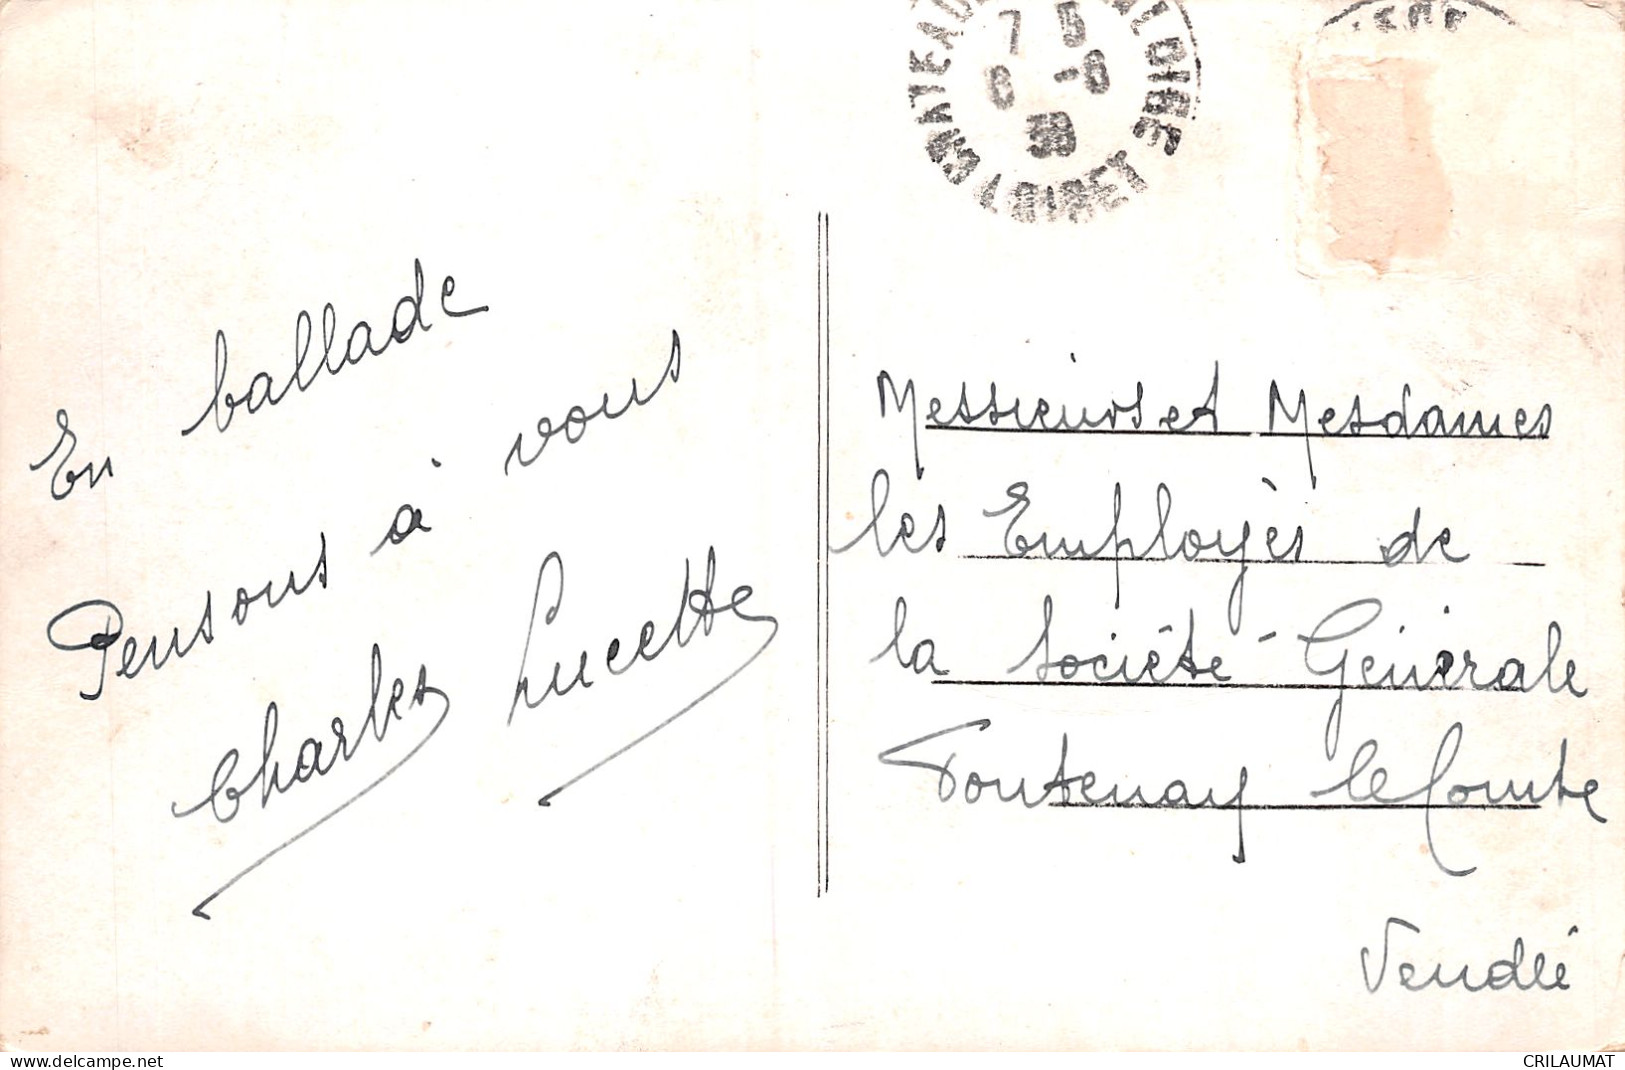 En ballade
Pensons à vous
Charles Lucette
7 5
6 -6
38
LOIRET
Messieurs et Mesdames
les Employès de
la Société Générale
Fontenay le Comte
Vendée
http://www.delcampe.net
CRILAUMAT